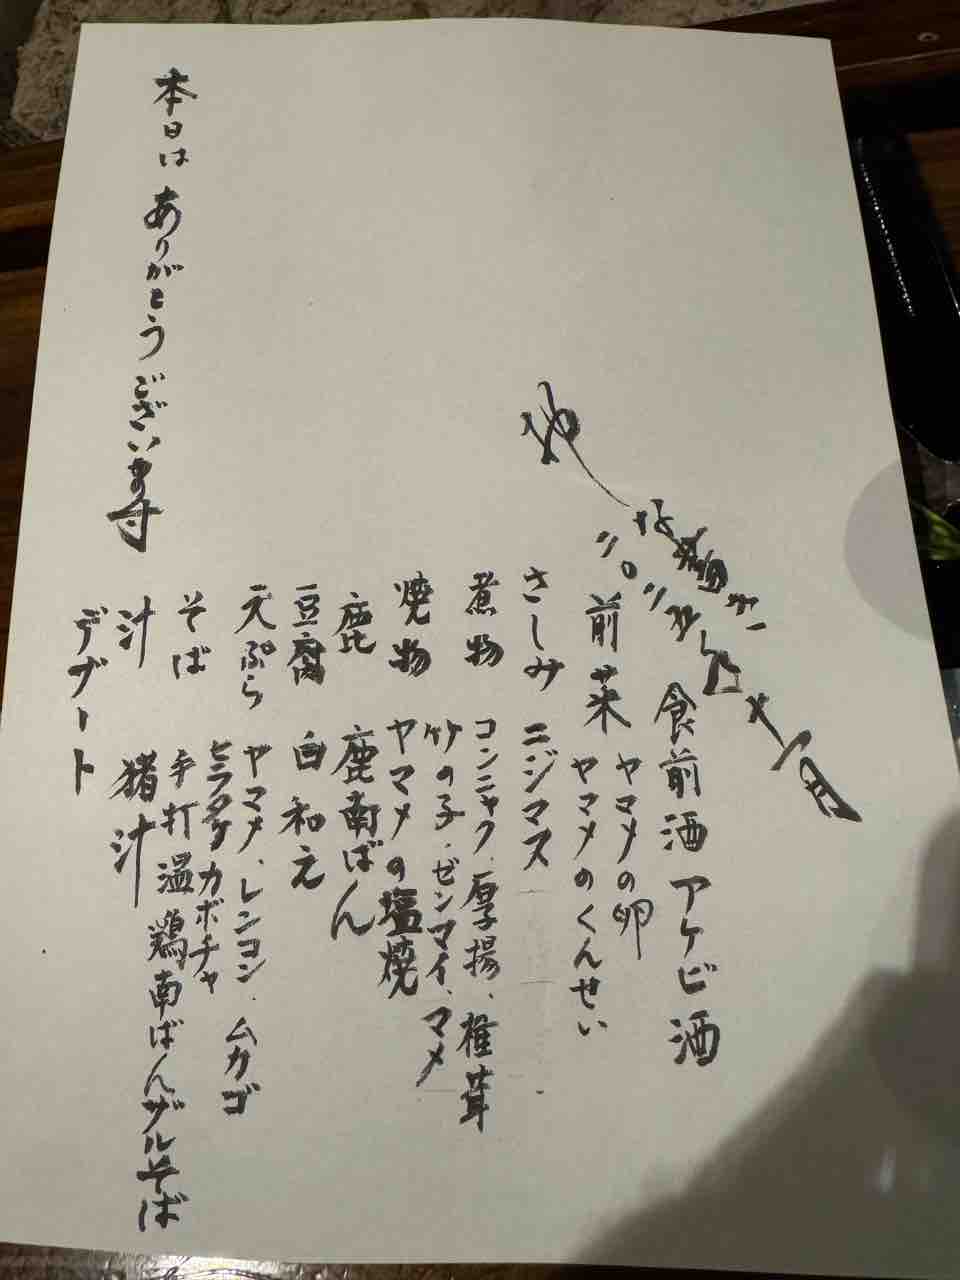 食前酒 アケビ酒
前菜 ヤマメの卵
ヤマメのくんせい
さしみ ニジマス
煮物 コンニャク、厚揚、椎茸
竹の子、ゼンマイ、マメ
焼物 ヤマメの塩焼
鹿 鹿南ばん
豆腐 白和え
天ぷら ヤマメ、レンコン、ムカゴ
カボチャ
そば 手打温鶏南ばんザルそば
汁 猪汁
デザート
本日はありがとうございま寸